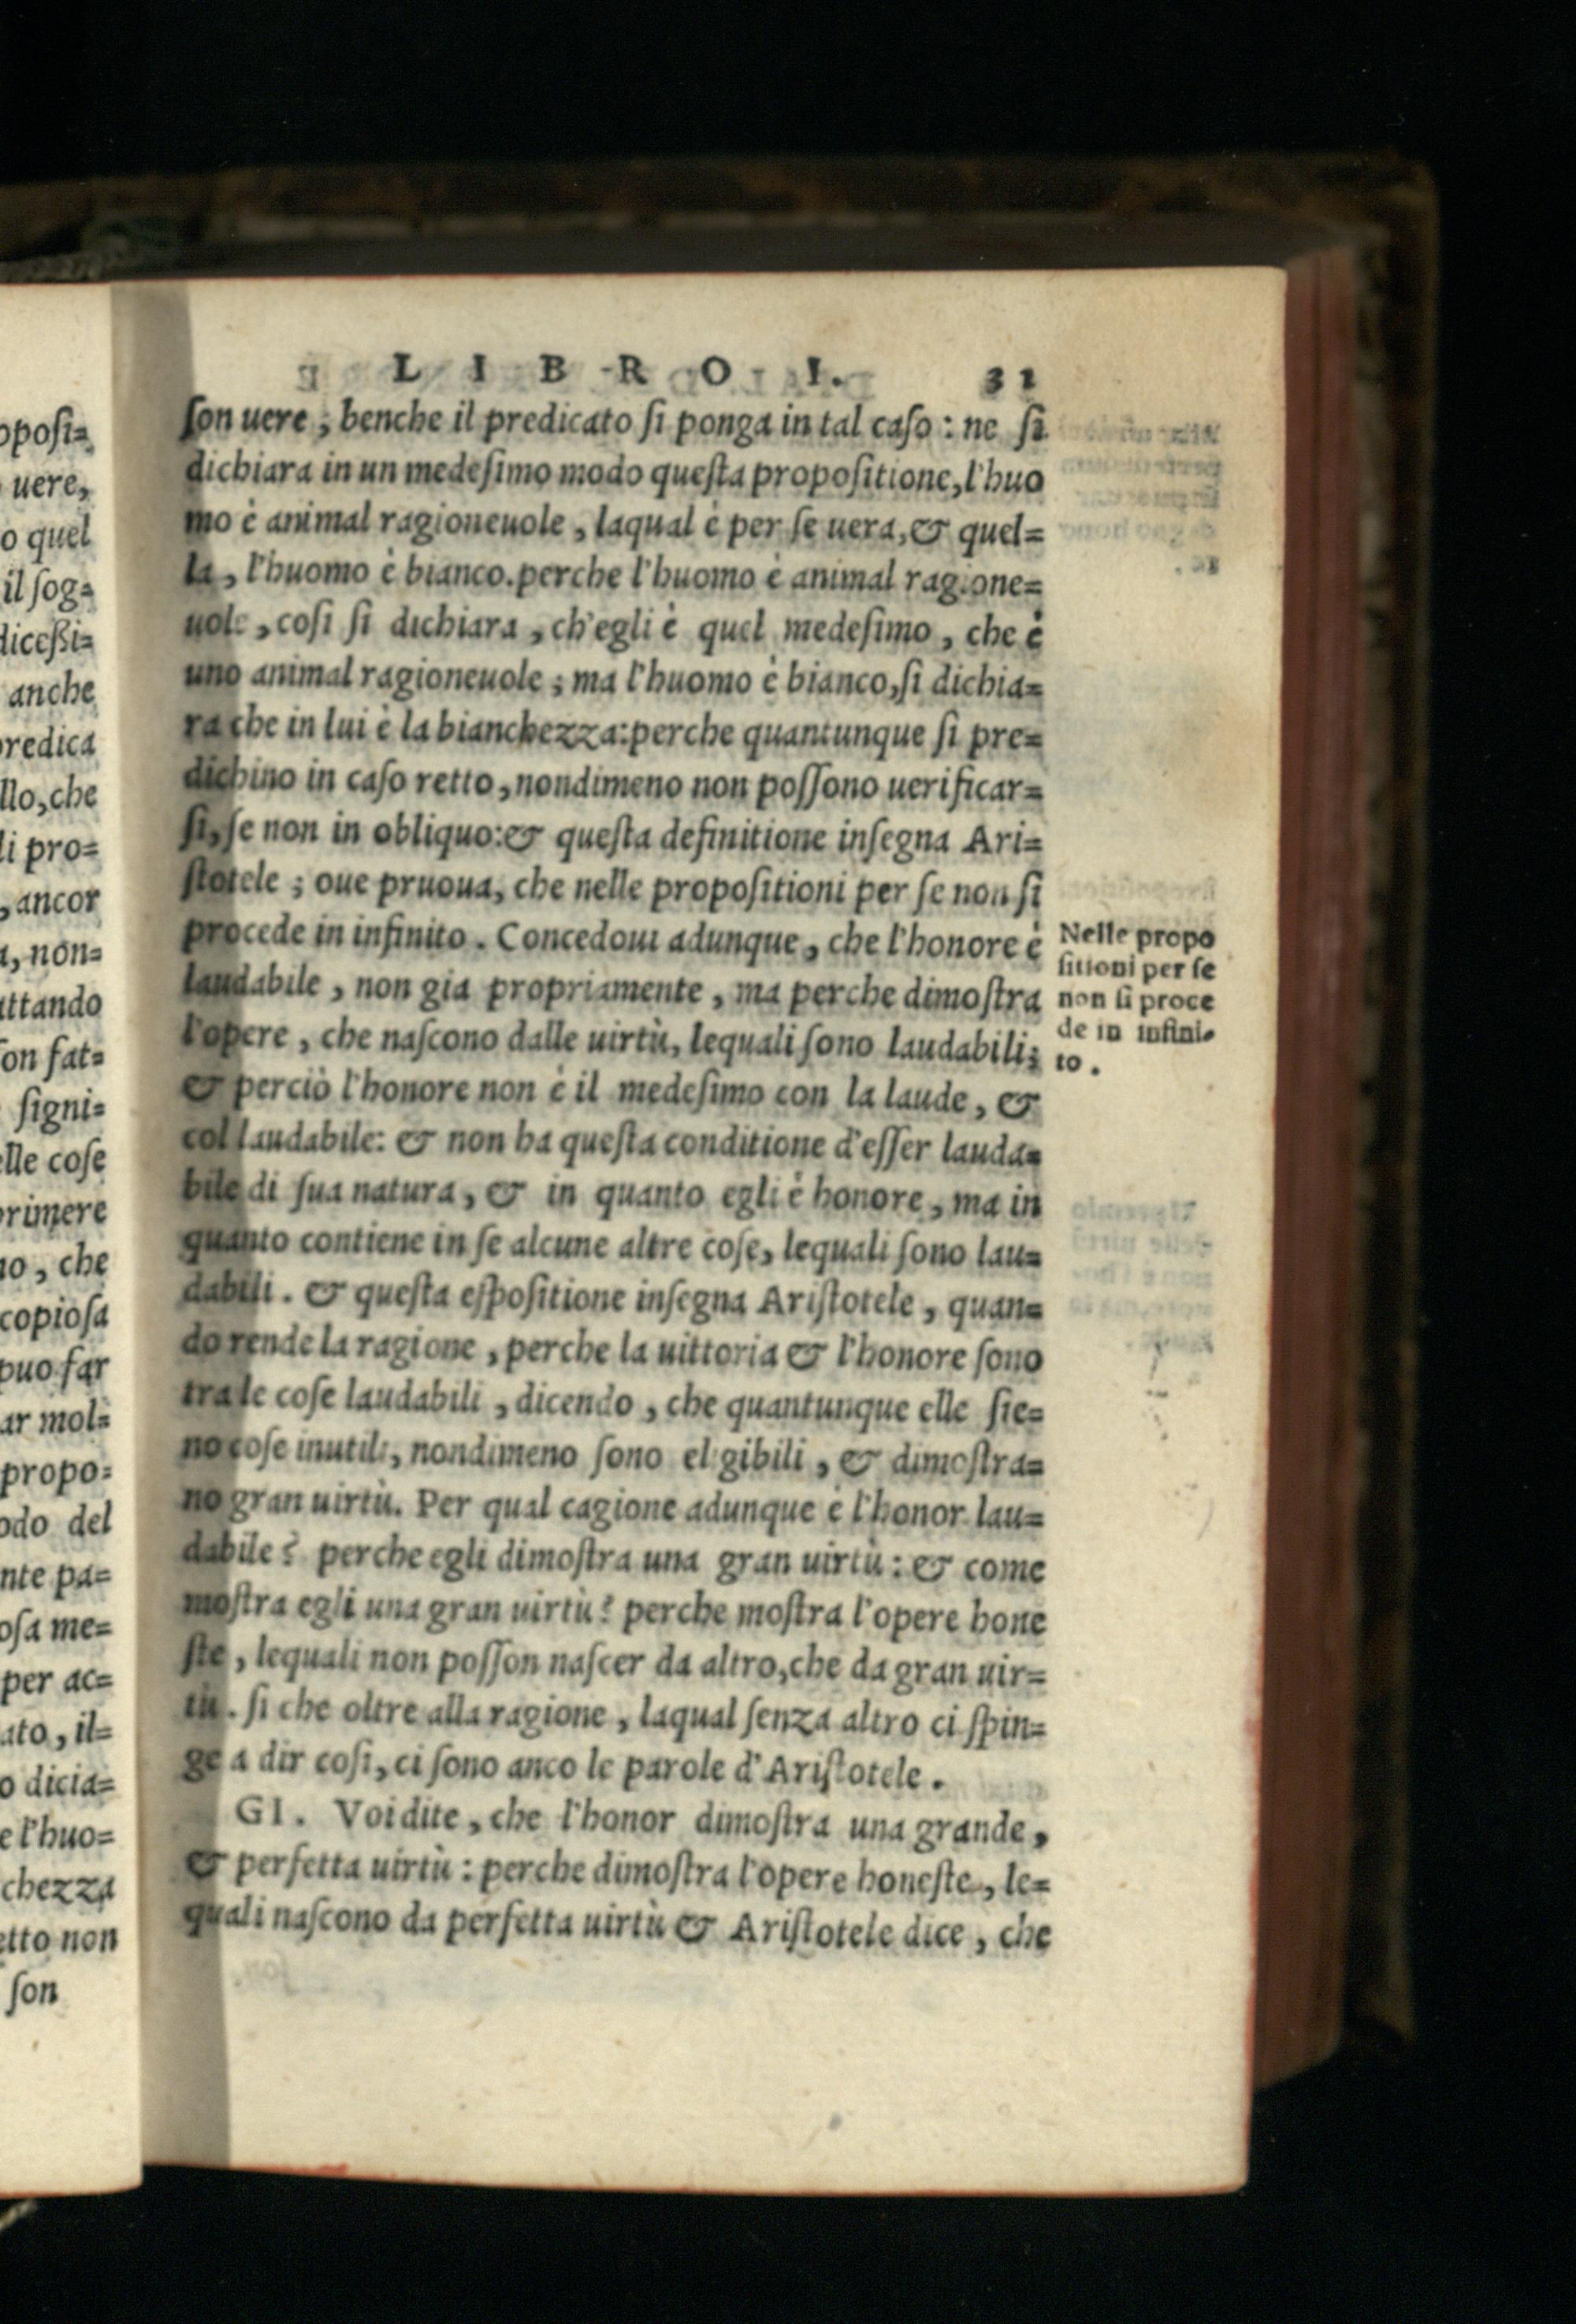 LIBRO I. 31
ſon uere; benche il predicato ſi ponga in tal caſo: ne ſi
dichiara in un medeſimo modo queſta propoſitione, l'huo
mo è animal ragioneuole, laqual è per ſe uera, & quel=
la, l'huomo è bianco. perche l'huomo è animal ragione=
uole, coſi ſi dichiara, ch'egli è quel medeſimo, che è
uno animal ragioneuole; ma l'huomo è bianco, ſi dichia=
ra che in lui è la bianchezza: perche quantunque ſi pre=
dichino in caſo retto, nondimeno non poſſono uerificar=
ſi, ſe non in obliquo: & queſta definitione inſegna Ari=
ſtotele; oue pruoua, che nelle propoſitioni per ſe non ſi
procede in infinito. Concedoui adunque, che l'honore è
laudabile, non gia propriamente, ma perche dimoſtra
l'opere, che naſcono dalle uirtù, lequali ſono laudabili;
& perciò l'honore non è il medeſimo con la laude, &
col laudabile: & non ha queſta conditione d'eſſer lauda=
bile di ſua natura, & in quanto egli è honore, ma in
quanto contiene in ſe alcune altre coſe, lequali ſono lau=
dabili. & queſta eſpoſitione inſegna Ariſtotele, quan=
do rende la ragione, perche la uittoria & l'honore ſono
tra le coſe laudabili, dicendo, che quantunque elle ſie=
no coſe inutili, nondimeno ſono eligibili, & dimoſtra=
no gran uirtù. Per qual cagione adunque è l'honor lau=
dabile? perche egli dimoſtra una gran uirtù: & come
moſtra egli una gran uirtù? perche moſtra l'opere hone
ſte, lequali non poſſon naſcer da altro, che da gran uir=
tù. ſi che oltre alla ragione, laqual ſenza altro ci ſpin=
ge a dir coſi, ci ſono anco le parole d'Ariſtotele.
GI. Voi dite, che l'honor dimoſtra una grande,
& perfetta uirtù: perche dimoſtra l'opere honeſte, le=
quali naſcono da perfetta uirtù & Ariſtotele dice, che
Nelle propo
ſitioni per ſe
non ſi proce
de in infini-
to.
opoſi=
uere,
o quel
il ſog=
diceßi=
anche
redica
llo, che
li pro=
, ancor
a, non=
attando
on fat=
ſigni=
elle coſe
primere
no, che
copioſa
puo far
ar mol=
propo=
odo del
nte pa=
oſa me=
per ac=
ato, il=
o dicia=
e l'huo=
chezza
etto non
ſon